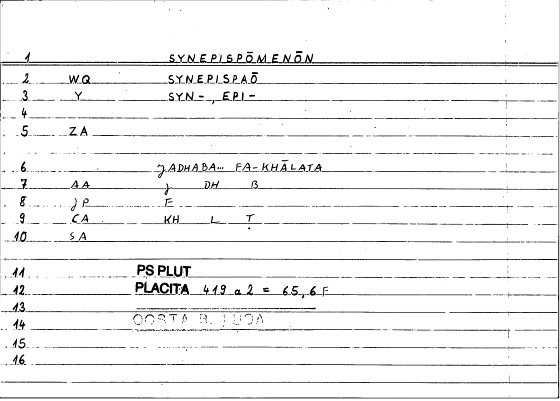 1 SYNEPISPŌMENŌN
2 WQ SYNEPISPAŌ
3 Y SYN-, EPI-
4
5 ZA
6 JADHABA... FA-KHĀLATA
7 AA J DH B
8 JP F
9 CA KH L Ṭ
10 SA
11 PS PLUT
12 PLACITA 419 a 2 = 65,6 F
13
14 QOSTA B. LUQA
15
16